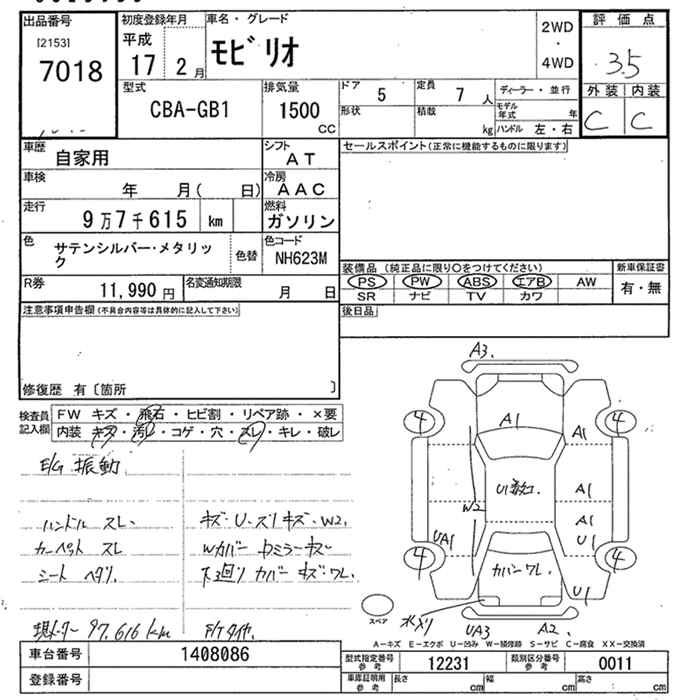 出品番号
[2153]
7018
初度登録年月
平成
17 2 月
車名・グレード
モビリオ
2WD
・
4WD
評価点
3.5
外装 内装
C C
型式
CBA-GB1
排気量
1500
CC
ドア
5
定員
7 人
形状
積載
kg
ディーラー・並行
モデル年式 年
ハンドル 左・右
車歴
自家用
シフト
AT
車検
年 月( 日)
冷房
AAC
走行
9万7千615 km
燃料
ガソリン
色
サテンシルバー・メタリック
色替
色コード
NH623M
R券
11,990 円
名変通知期限
月 日
セールスポイント(正常に機能するものに限ります)
装備品(純正品に限り○をつけてください)
PS PW ABS エアB AW
SR ナビ TV カワ
新車保証書
有・無
後日品
注意事項申告欄(不具合内容等は具体的に記入して下さい)
修復歴 有〔箇所 〕
検査員記入欄
FW キズ・飛石・ヒビ割・リペア跡・×要
内装 キズ・汚レ・コゲ・穴・スレ・キレ・破レ
E/G 振動
ハンドル スレ
カーペット スレ
シート ヘタリ
キズ・U・スリキズ・W2
Wカバー タミラーキズ
下廻り カバー キズ・ワレ
現メーター 97,616 km
F/Tタイヤ
A3
4
4
A1
A1
W2
A1
A1
UA1
U1
4
4
カバンワレ
U1
水入り
UA3
A2
スペア
A-キズ E-エクボ U-凹み W-補修跡 S-サビ C-腐食 XX-交換済
車台番号
1408086
登録番号
型式指定番号
参考
12231
類別区分番号
参考
0011
車庫証明用
参考
長さ
cm
幅
cm
高さ
cm